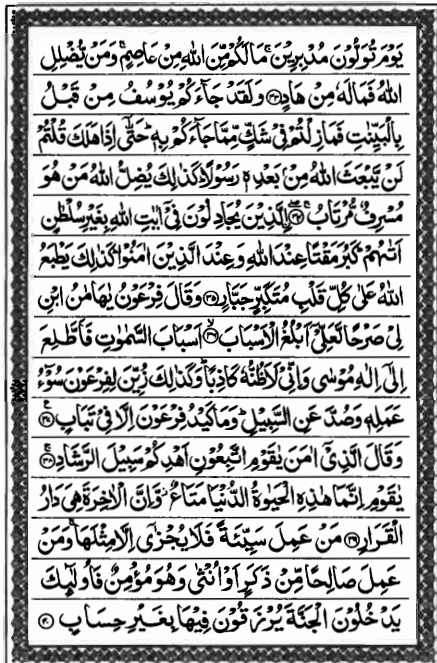 يَوْمَ تُوَلُّوْنَ مُدْبِرِيْنَ ۚ مَا لَكُمْ مِّنَ اللّٰهِ مِنْ عَاصِمٍ ۚ وَمَنْ يُّضْلِلِ
اللّٰهُ فَمَا لَهٗ مِنْ هَادٍ ﴿۳۳﴾ وَلَقَدْ جَآءَكُمْ يُوْسُفُ مِنْ قَبْلُ
بِالْبَيِّنٰتِ فَمَا زِلْتُمْ فِيْ شَكٍّ مِّمَّا جَآءَكُمْ بِهٖ ؕ حَتّٰۤى اِذَا هَلَكَ قُلْتُمْ
لَنْ يَّبْعَثَ اللّٰهُ مِنْۢ بَعْدِهٖ رَسُوْلًا ؕ كَذٰلِكَ يُضِلُّ اللّٰهُ مَنْ هُوَ
مُسْرِفٌ مُّرْتَابُ ۚ ﴿۳۴﴾ الَّذِيْنَ يُجَادِلُوْنَ فِيْۤ اٰيٰتِ اللّٰهِ بِغَيْرِ سُلْطٰنٍ
اَتٰىهُمْ ؕ كَبُرَ مَقْتًا عِنْدَ اللّٰهِ وَعِنْدَ الَّذِيْنَ اٰمَنُوْا ؕ كَذٰلِكَ يَطْبَعُ
اللّٰهُ عَلٰى كُلِّ قَلْبِ مُتَكَبِّرٍ جَبَّارٍ ﴿۳۵﴾ وَقَالَ فِرْعَوْنُ يٰهَامٰنُ ابْنِ
لِيْ صَرْحًا لَّعَلِّيْۤ اَبْلُغُ الْاَسْبَابَ ۙ ﴿۳۶﴾ اَسْبَابَ السَّمٰوٰتِ فَاَطَّلِعَ
اِلٰۤى اِلٰهِ مُوْسٰى وَاِنِّيْ لَاَظُنُّهٗ كَاذِبًا ؕ وَكَذٰلِكَ زُيِّنَ لِفِرْعَوْنَ سُوْٓءُ
عَمَلِهٖ وَصُدَّ عَنِ السَّبِيْلِ ؕ وَمَا كَيْدُ فِرْعَوْنَ اِلَّا فِيْ تَبَابٍ ﴿۳۷﴾
وَقَالَ الَّذِيْۤ اٰمَنَ يٰقَوْمِ اتَّبِعُوْنِ اَهْدِكُمْ سَبِيْلَ الرَّشَادِ ۚ ﴿۳۸﴾
يٰقَوْمِ اِنَّمَا هٰذِهِ الْحَيٰوةُ الدُّنْيَا مَتَاعٌ ؗ وَّاِنَّ الْاٰخِرَةَ هِيَ دَارُ
الْقَرَارِ ﴿۳۹﴾ مَنْ عَمِلَ سَيِّئَةً فَلَا يُجْزٰۤى اِلَّا مِثْلَهَا ۚ وَمَنْ
عَمِلَ صَالِحًا مِّنْ ذَكَرٍ اَوْ اُنْثٰى وَهُوَ مُؤْمِنٌ فَاُولٰٓئِكَ
يَدْخُلُوْنَ الْجَنَّةَ يُرْزَقُوْنَ فِيْهَا بِغَيْرِ حِسَابٍ ﴿۴۰﴾